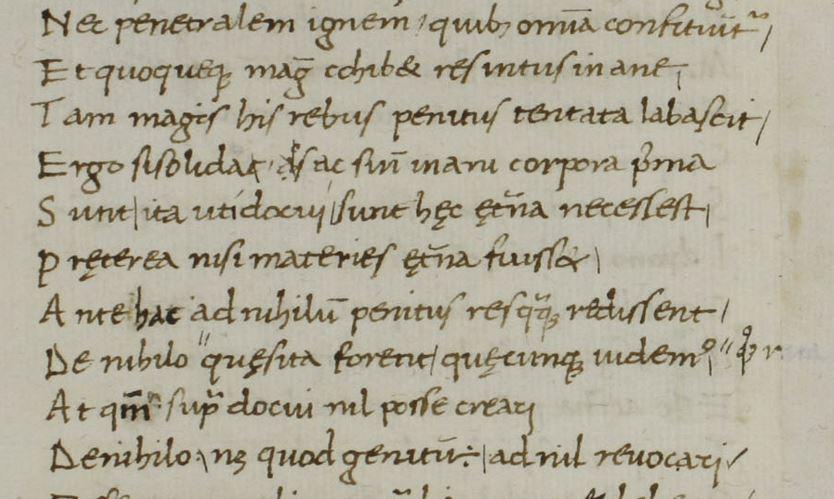 Nec penetralem ignem / quib; omīa confitiūt᷑ /
Et quoqueq; mag̅ cohib& res intus inane /
Tam magis his rebus penitus tentata labascit /
Ergo si solida ac sin̄ inani corpora p̄ma
Sunt | ita uti docui / sunt hęc ęt̄na necessest /
Pręterea nisi materies ęt̄na fuiss& /
Ante hac ad nihilū penitus res q̄q; redissent /
De nihilo quęsita forent / quęcunq; uidemꝰ /
At qm̅ sup̄ docui nil posse creari
De nihilo / neq; quod genitū : / ad nil reuocari /